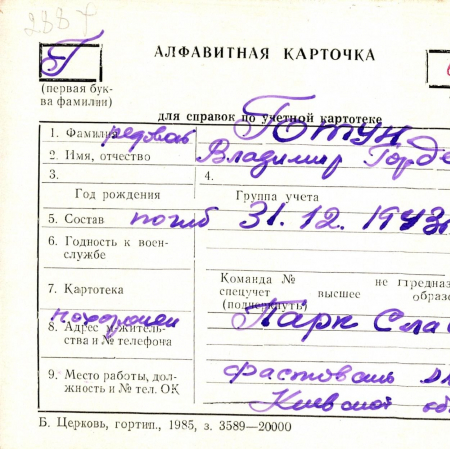 2887
Г
АЛФАВИТНАЯ КАРТОЧКА
(первая бук-
ва фамилии)
для справок по учетной картотеке
1. Фамилия рядовой Готун
2. Имя, отчество Владимир Горде
3. 4.
Год рождения Группа учета
5. Состав погиб 31.12.1943г
6. Годность к воен-
службе
Команда № не предназ
7. Картотека спецучет высшее образо
(подчеркнуть)
похоронен Парк Слав
8. Адрес м/житель-
ства и № телефона
9. Место работы, дол-
жность и № тел. ОК
Фастовский
Киевской об
Б. Церковь, гортип., 1985, з. 3589—20000